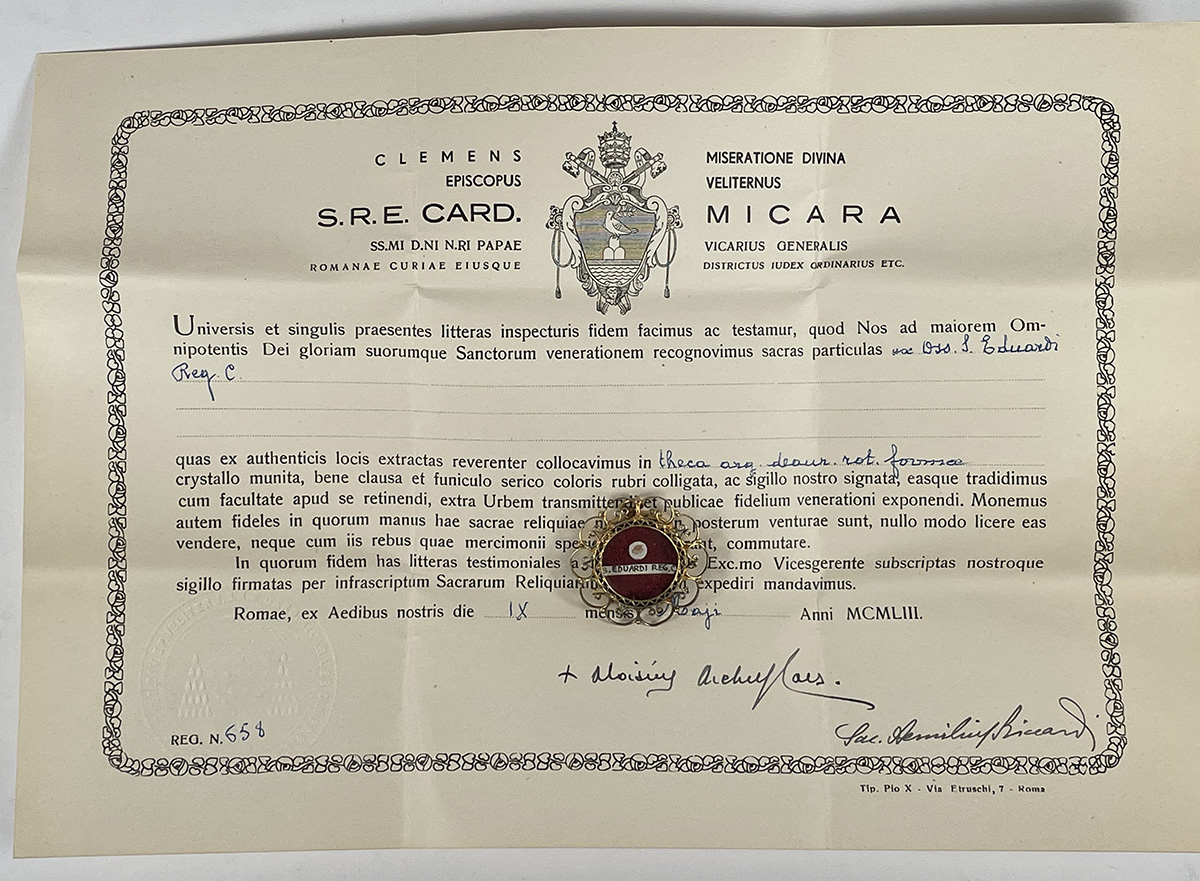 CLEMENS MISERATIONE DIVINA
EPISCOPUS VELITERNUS
S.R.E. CARD. MICARA
SS.MI D.NI N.RI PAPAE VICARIUS GENERALIS
ROMANAE CURIAE EIUSQUE DISTRICTUS IUDEX ORDINARIUS ETC.
Universis et singulis praesentes litteras inspecturis fidem facimus ac testamur, quod Nos ad maiorem Om-
nipotentis Dei gloriam suorumque Sanctorum venerationem recognovimus sacras particulas ex Oss. S. Eduardi
Reg. C.
quas ex authenticis locis extractas reverenter collocavimus in theca arg. deaur. rot. formae
crystallo munita, bene clausa et funiculo serico coloris rubri colligata, ac sigillo nostro signata, easque tradidimus
cum facultate apud se retinendi, extra Urbem et publicae fidelium venerationi exponendi. Monemus
autem fideles in quorum manus hae sacrae reliquiae posterum venturae sunt, nullo modo licere eas
vendere, neque cum iis rebus quae mercimonii commutare.
S. EDUARDI REG. C.
In quorum fidem has litteras testimoniales a Exc.mo Vicesgerente subscriptas nostroque
sigillo firmatas per infrascriptum Sacrarum expediri mandavimus.
Romae, ex Aedibus nostris die IX mensis Anni MCMLIII.
+ Aloisius
REG. N. 658
Sac. Aemilius Riccardi
Tip. Pio X - Via Etruschi, 7 - Roma